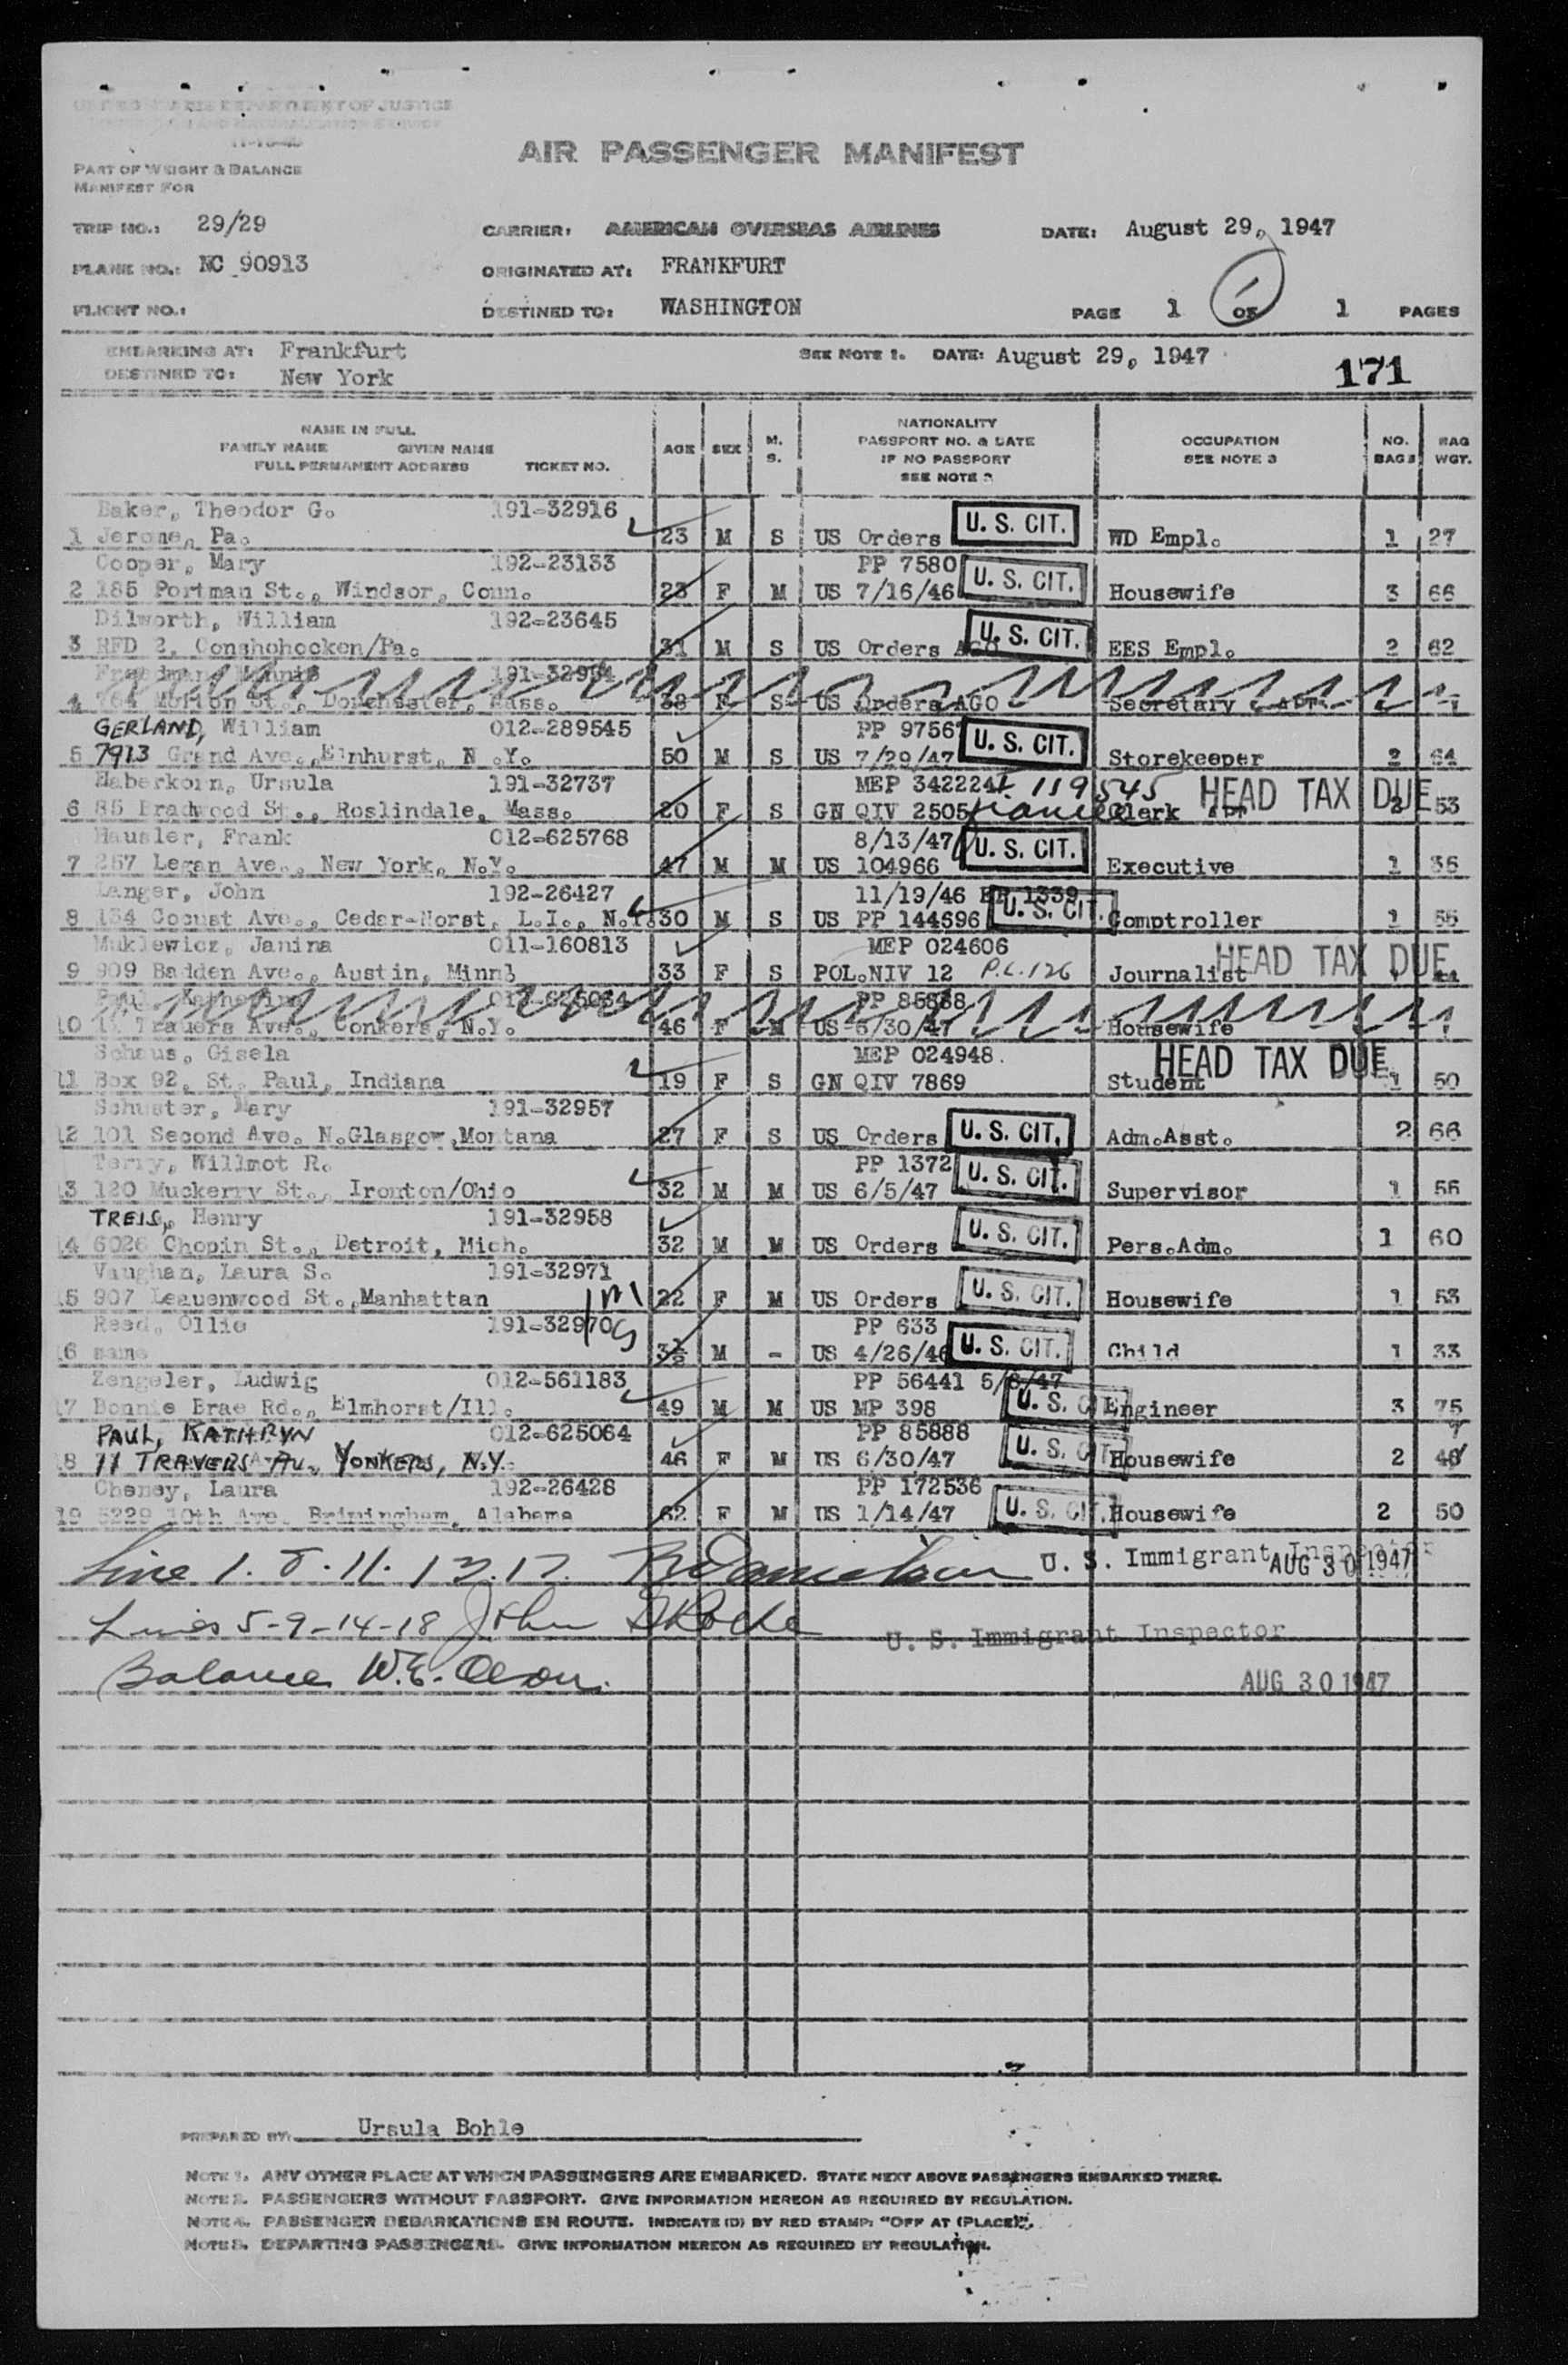 UNITED STATES DEPARTMENT OF JUSTICE
IMMIGRATION AND NATURALIZATION SERVICE
AIR PASSENGER MANIFEST
PART OF WEIGHT & BALANCE
MANIFEST FOR
TRIP NO.: 29/29 CARRIER: AMERICAN OVERSEAS AIRLINES DATE: August 29, 1947
PLANE NO.: NC 90913 ORIGINATED AT: FRANKFURT
FLIGHT NO.: DESTINED TO: WASHINGTON PAGE 1 OF 1 PAGES
EMBARKING AT: Frankfurt SEE NOTE 1. DATE: August 29, 1947
DESTINED TO: New York 171
NAME IN FULL NATIONALITY
FAMILY NAME GIVEN NAME AGE SEX M. S. PASSPORT NO. & DATE OCCUPATION NO. BAG
FULL PERMANENT ADDRESS TICKET NO. IF NO PASSPORT SEE NOTE 3 BAGS WGT.
SEE NOTE 2
Baker, Theodor G. 191-32916
1 Jerome, Pa. 23 M S US Orders U. S. CIT. WD Empl. 1 27
Cooper, Mary 192-23133 PP 7580
2 185 Portman St., Windsor, Conn. 23 F M US 7/16/46 U. S. CIT. Housewife 3 66
Dilworth, William 192-23645
3 RFD 2, Conshohocken/Pa. 31 M S US Orders AGO U. S. CIT. EES Empl. 2 62
4 764 Morton St., Dorchester, Mass. 38 F S US Orders AGO Secretary
GERLAND, William 012-289545 PP 9756
5 7913 Grand Ave., Elmhurst, N.Y. 50 M S US 7/29/47 U. S. CIT. Storekeeper 2 64
Haberkorn, Ursula 191-32737 MEP 342224 I 119545 HEAD TAX DUE
6 85 Bradwood St., Roslindale, Mass. 20 F S GN QIV 2505 fiancee Clerk 2 53
Hausler, Frank 012-625768 8/13/47
7 257 Legan Ave., New York, N.Y. 47 M M US 104966 U. S. CIT. Executive 1 36
Langer, John 192-26427 11/19/46 PP 1339
8 134 Cocust Ave., Cedar-Horst, L.I., N.Y. 30 M S US PP 144696 U. S. CIT. Comptroller 1 55
Muklewicz, Janina 011-160813 MEP 024606 HEAD TAX DUE
9 909 Badden Ave., Austin, Minn. 33 F S POL. NIV 12 P.L. 126 Journalist 1 44
Paul, Katherine 012-625064 PP 85888
10 11 Trauers Ave., Conkers, N.Y. 46 F M US 6/30/47 Housewife
Schaus, Gisela MEP 024948. HEAD TAX DUE
11 Box 92, St. Paul, Indiana 19 F S GN QIV 7869 Student 1 50
Schuster, Mary 191-32957
12 101 Second Ave. N.Glasgow,Montana 27 F S US Orders U. S. CIT. Adm.Asst. 2 66
Terry, Willmot R. PP 1372
13 120 Muckerry St., Ironton/Ohio 32 M M US 6/5/47 U. S. CIT. Supervisor 1 55
TREIS, Henry 191-32958
14 6026 Chopin St., Detroit, Mich. 32 M M US Orders U. S. CIT. Pers.Adm. 1 60
Vaughan, Laura S. 191-32971
15 907 Leauenwood St.,Manhattan 22 F M US Orders U. S. CIT. Housewife 1 53
Reed, Ollie 191-32970 PP 633
16 same 3½ M - US 4/26/46 U. S. CIT. Child 1 33
Zengeler, Ludwig 012-561183 PP 56441 5/6/47
17 Bonnie Brae Rd., Elmhorst/Ill. 49 M M US MP 398 U. S. CIT. Engineer 3 75
PAUL, KATHRYN 012-625064 PP 85888
18 11 TRAVERS AV., YONKERS, N.Y. 46 F M US 6/30/47 U. S. CIT. Housewife 2 46
Cheney, Laura 192-26428 PP 172536
19 5229 10th Ave. Brimingham, Alabama 62 F M US 1/14/47 U. S. CIT. Housewife 2 50
Line 1. 8. 11. 13. 17. U. S. Immigrant Inspector AUG 30 1947
Lines 5-9-14-18 John U. S. Immigrant Inspector
Balance W.E. Olson. AUG 30 1947
PREPARED BY: Ursula Bohle
NOTE 1. ANY OTHER PLACE AT WHICH PASSENGERS ARE EMBARKED. STATE NEXT ABOVE PASSENGERS EMBARKED THERE.
NOTE 2. PASSENGERS WITHOUT PASSPORT. GIVE INFORMATION HEREON AS REQUIRED BY REGULATION.
NOTE 4. PASSENGER DEBARKATIONS EN ROUTE. INDICATE (D) BY RED STAMP: "OFF AT (PLACE)".
NOTE 3. DEPARTING PASSENGERS. GIVE INFORMATION HEREON AS REQUIRED BY REGULATION.